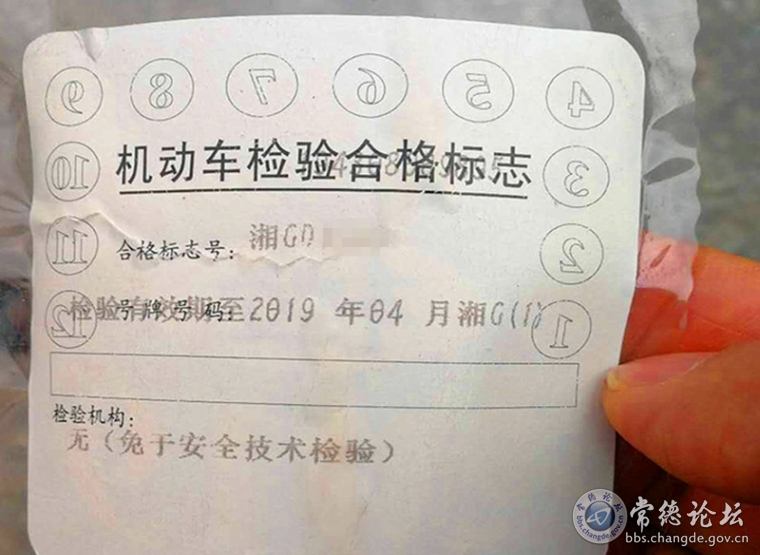 9 8 7 6 5 4
机动车检验合格标志
10 3
合格标志号: 湘GD
11 2
号牌号码:
检验有效期至2019 年04 月湘G(1)
12 1
检验机构:
无(免于安全技术检验)
常德论坛
bbs.changde.gov.cn